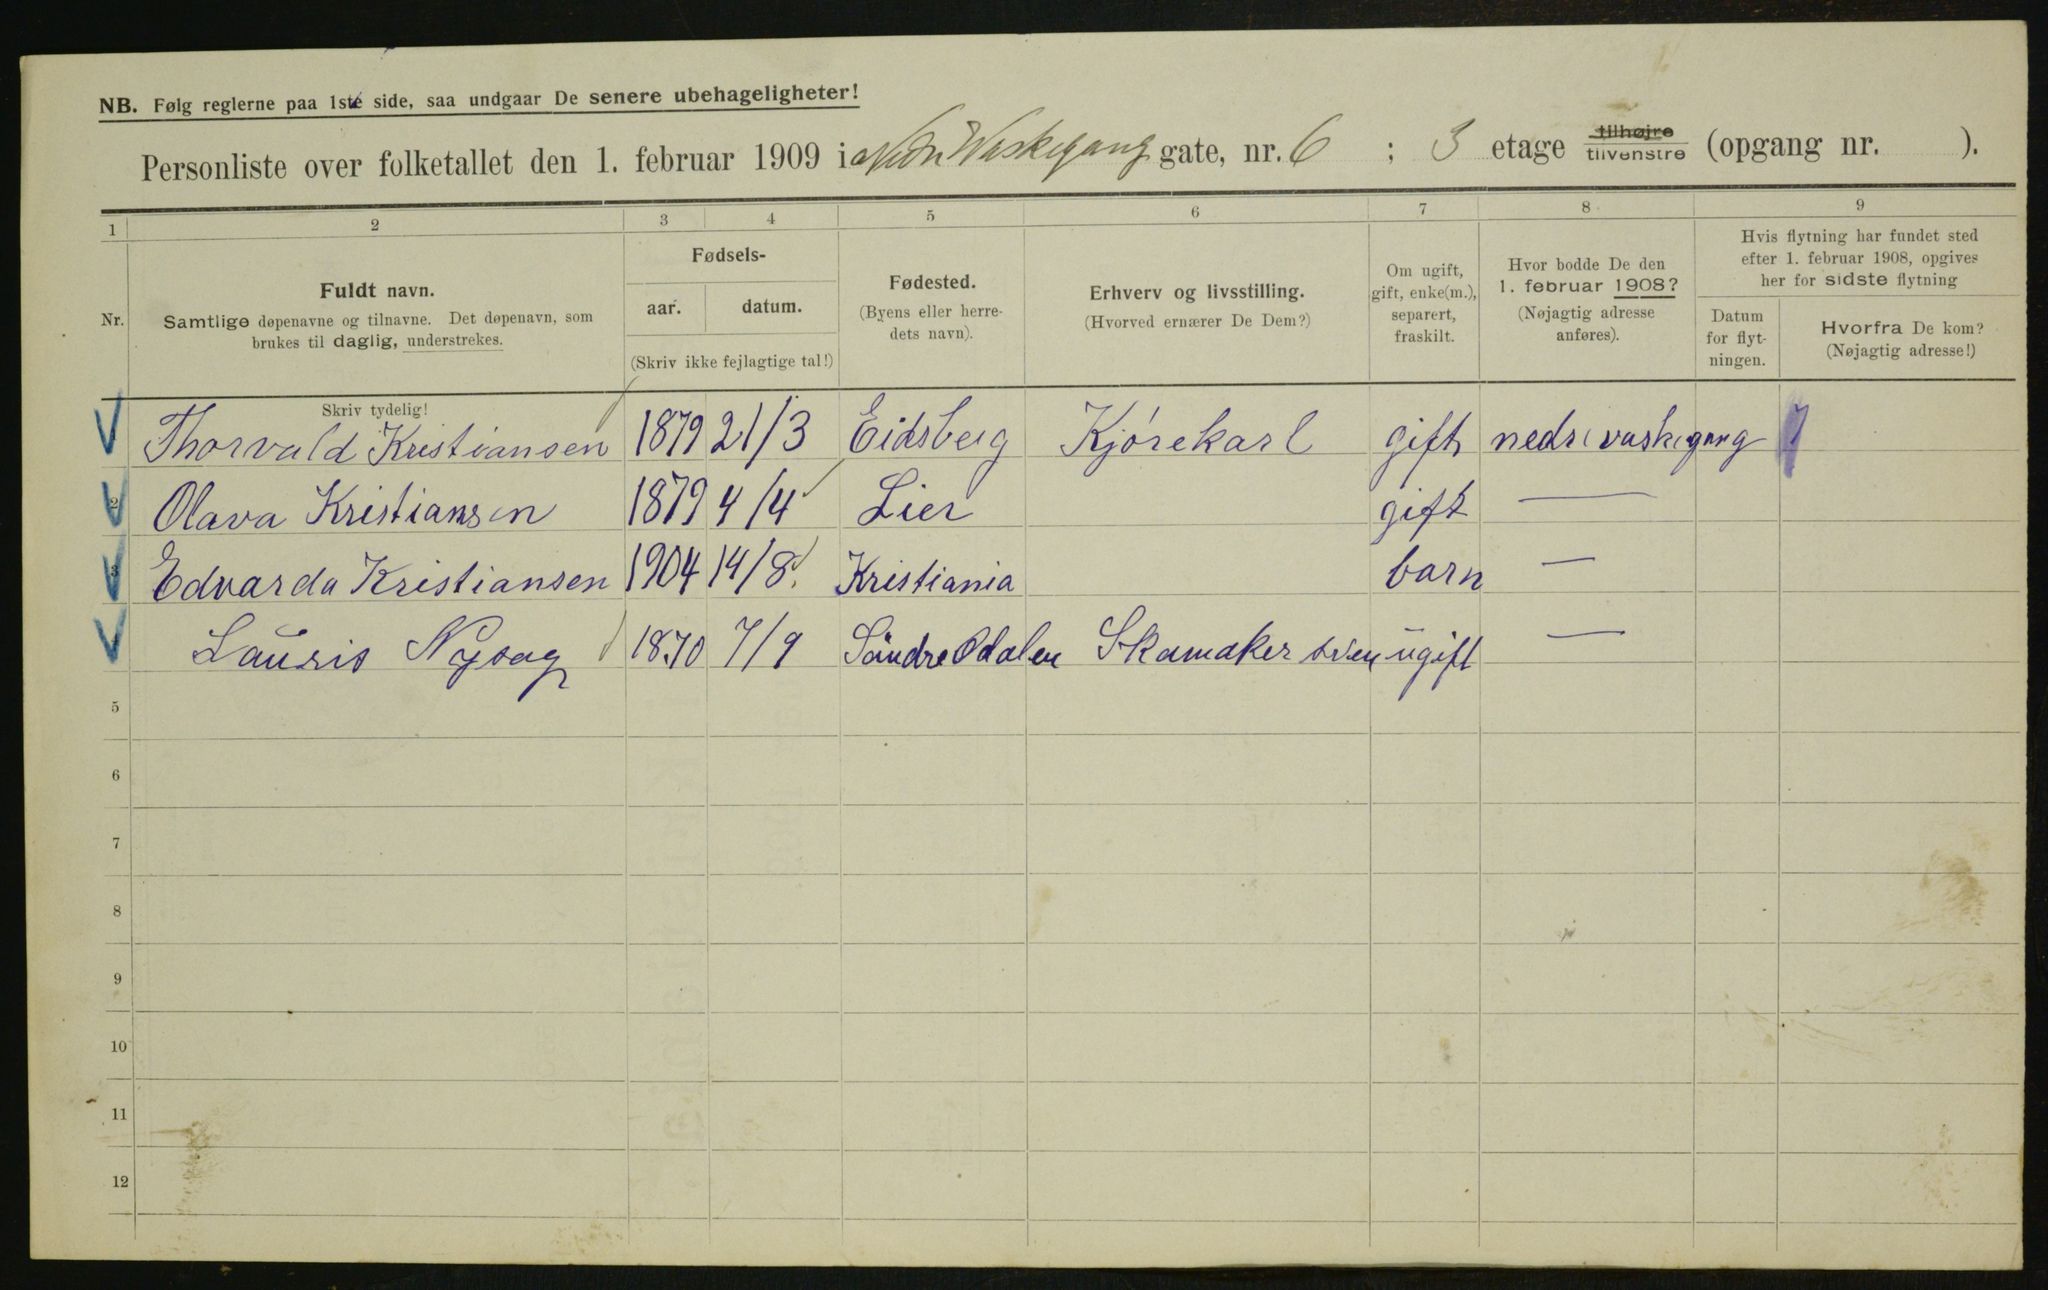 NB. Følg reglerne paa 1ste side, saa undgaar De senere ubehageligheter!
Personliste over folketallet den 1. februar 1909 i Nedre Vaskegang gate, nr. 6 ; 3 etage tilhøjre tilvenstre (opgang nr. ).
1 2 3 4 5 6 7 8 9
Nr.
Fuldt navn.
Samtlige døpenavne og tilnavne. Det døpenavn, som
brukes til daglig, understrekes.
Skriv tydelig!
Fødsels-
aar. datum.
(Skriv ikke fejlagtige tal!)
Fødested.
(Byens eller herre-
dets navn).
Erhverv og livsstilling.
(Hvorved ernærer De Dem?)
Om ugift,
gift, enke(m.),
separert,
fraskilt.
Hvor bodde De den
1. februar 1908?
(Nøjagtig adresse
anføres).
Hvis flytning har fundet sted
efter 1. februar 1908, opgives
her for sidste flytning
Datum
for flyt-
ningen.
Hvorfra De kom?
(Nøjagtig adresse!)
Thorvald Kristiansen 1879 21/3 Eidsberg Kjörekarl gift nedre vaskegang 7
2 Olava Kristiansen 1879 4/4 Lier gift —
3 Edvarda Kristiansen 1904 14/8 Kristiania barn —
4 Lauris Nysag 1870 7/9 Söndre Odalen Skomaker sven ugift —
5
6
7
8
9
10
11
12